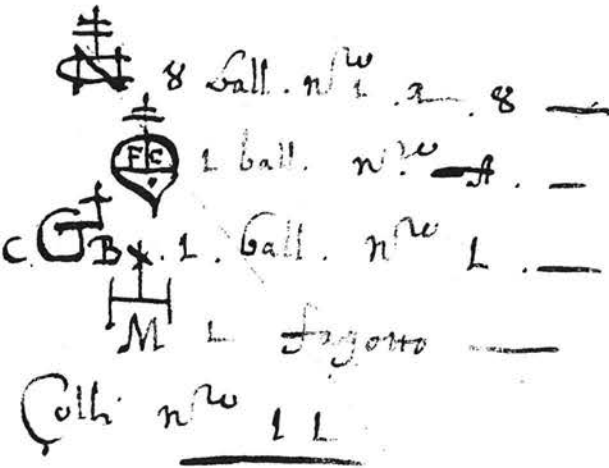 8 ball. nro 1 a 8
F C 1 ball. nro A.
C. G B. 1. ball. nro 1.
M 1 fagotto
Colli nro 11